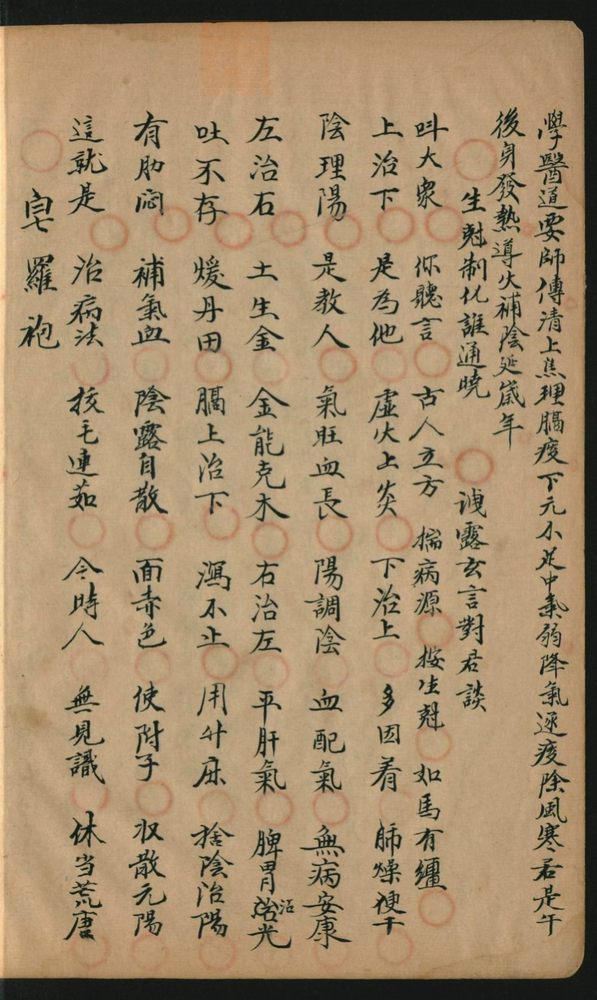 學醫道要師傳清上焦理膈痰下元不足中氣弱降氣逐痰除風寒若是午
後身發熱導火補陰延歲年
生尅制化誰通曉 洩露玄言對君談
呌大衆 你聽言 古人立方 揣病源 按生尅 如馬有韁
上治下 是為他 虛火上炎 下治上 多因着 肺燥便干
陰理陽 是教人 氣旺血長 陽調陰 血配氣 無病安康
左治右 土生金 金能克木 右治左 平肝氣 脾胃沾光
吐不存 煖丹田 膈上治下 瀉不止 用升麻 捨陰治陽
有肋悶 補氣血 陰露自散 面赤色 使附子 収散元陽
這就是 治病法 拔毛連茹 今時人 無見識 休当荒唐
皂羅袍